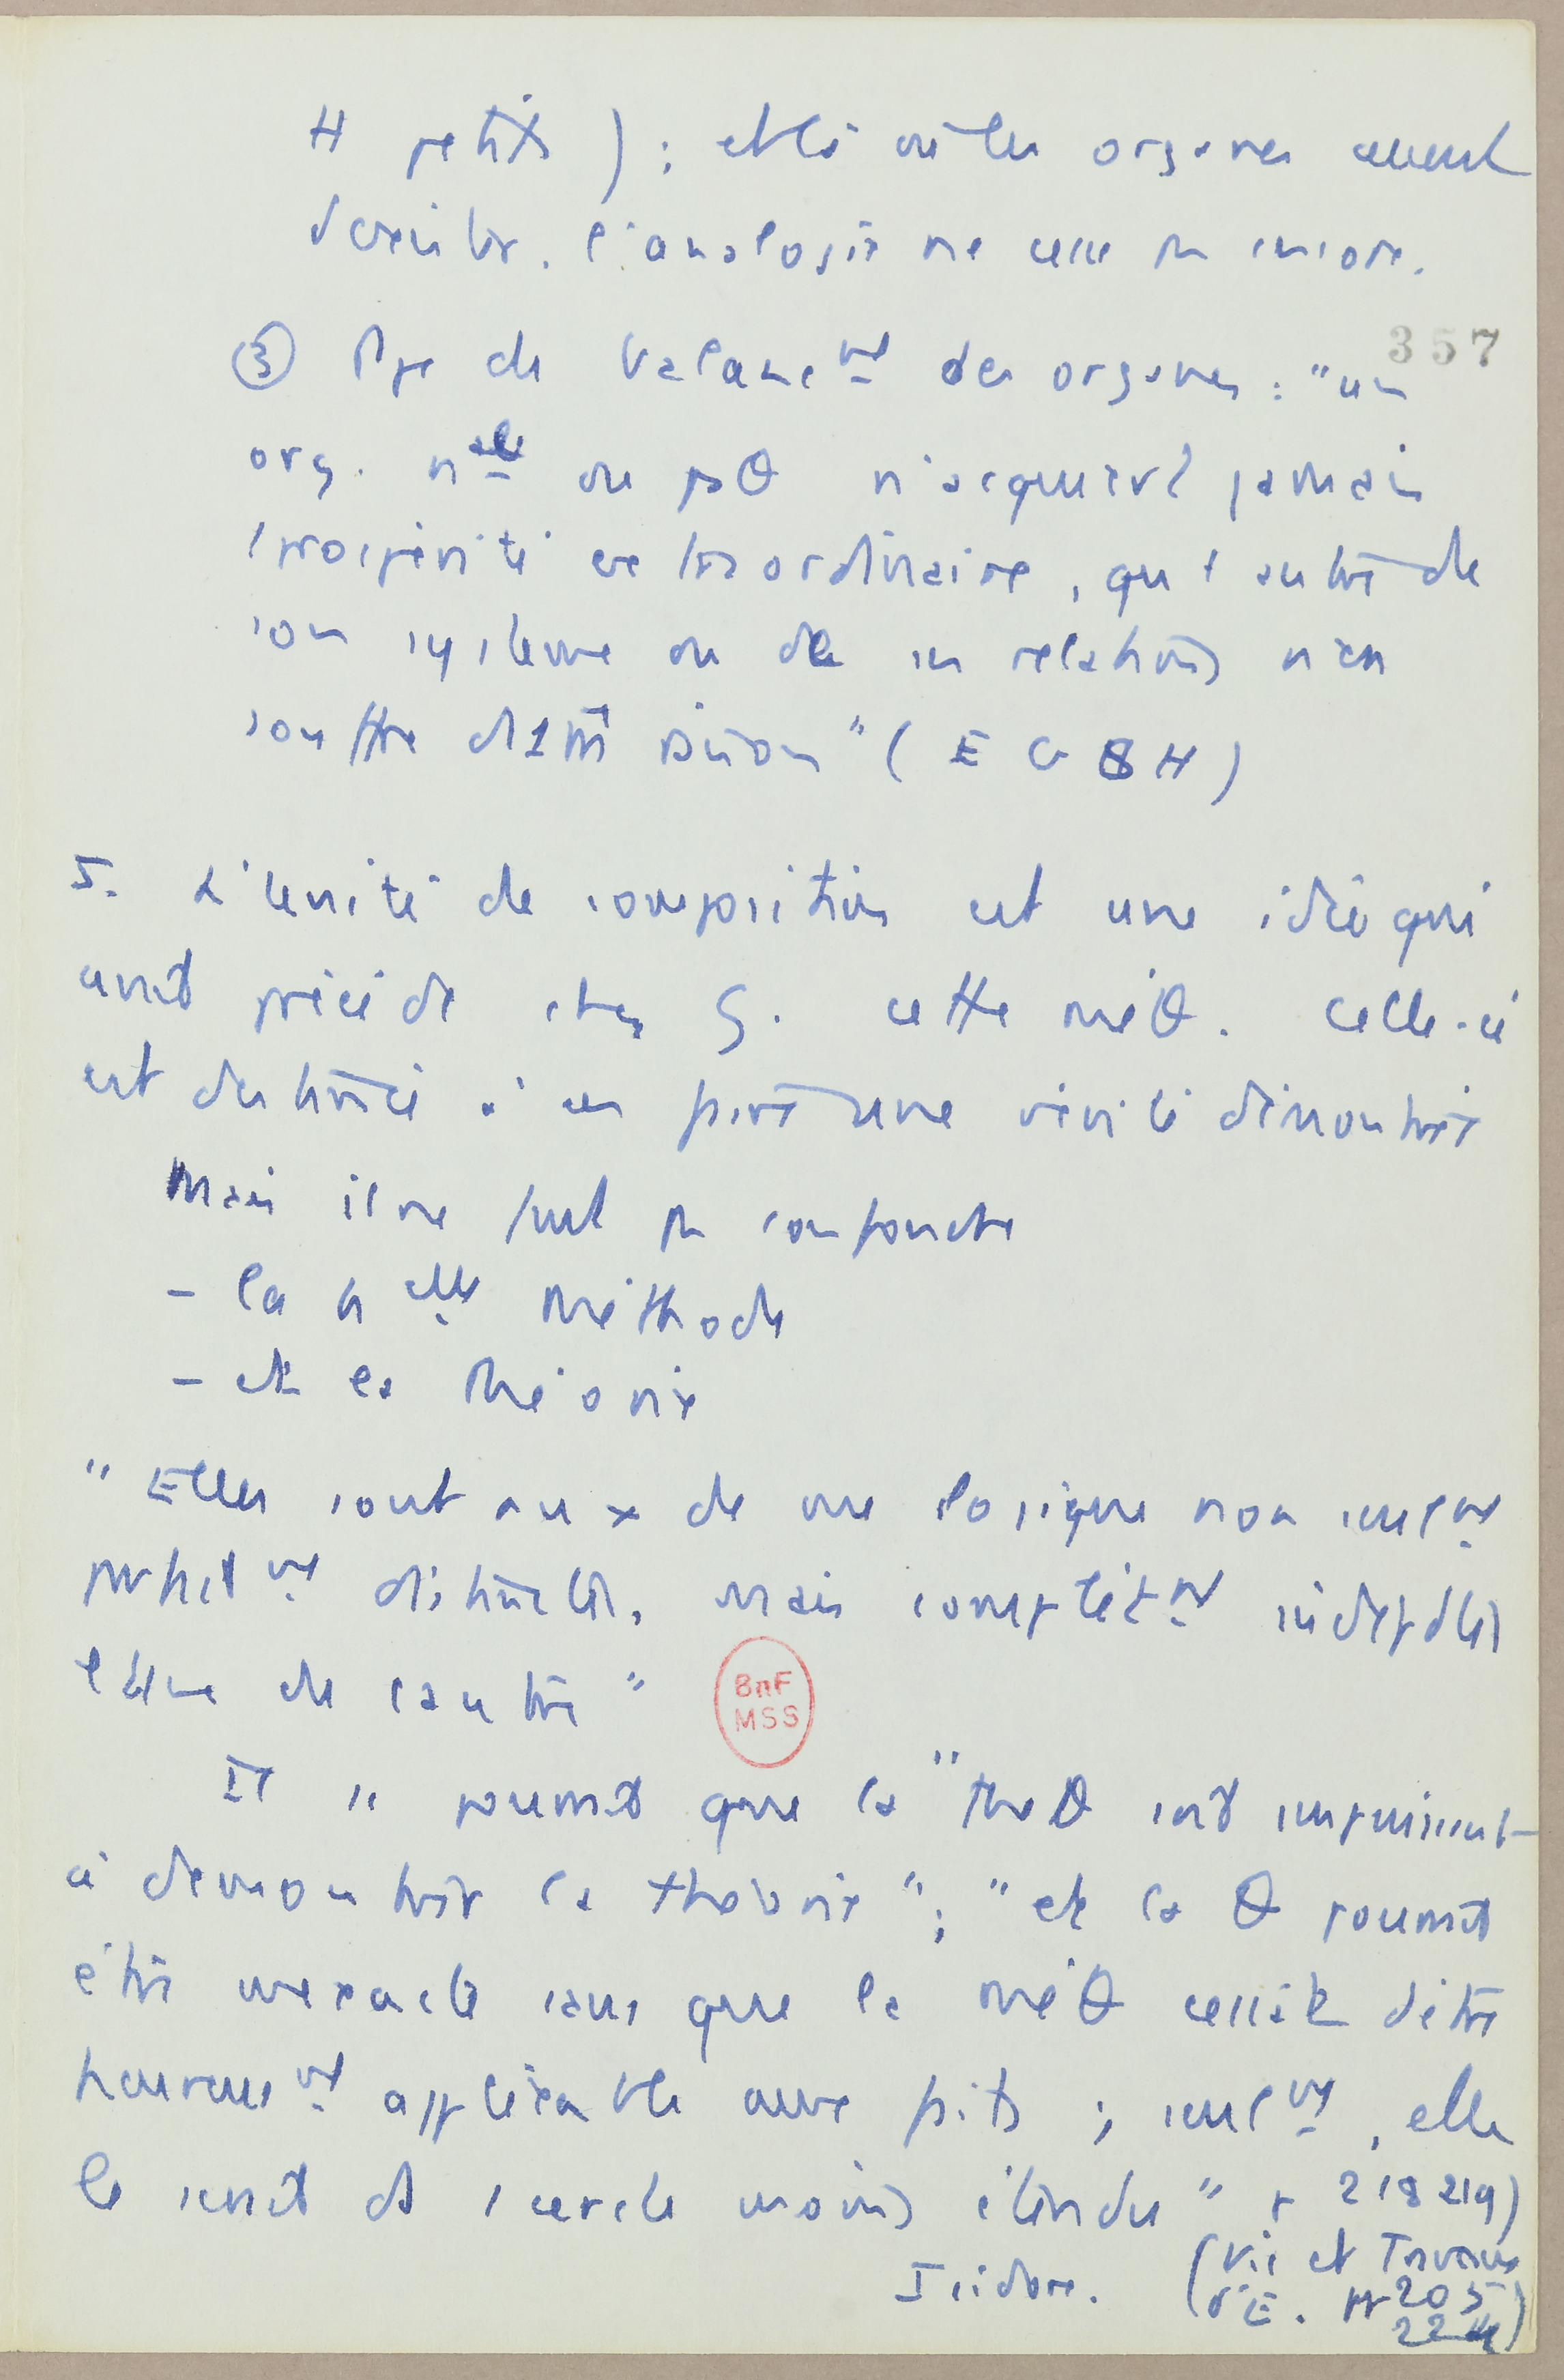 H petits) ; et là où les organes cessent
d'exister. l'analogie ne cesse pas encore.
357
③ Ppe de balanc^mt des organes : "un
org. n^al ou pθ n'acquiert jamais
1 prospérité extraordinaire, qu'1 autre de
son système ou de ses relations n'en
souffre ds 1 m raison" (E G S H)
I. L'unité de composition est une idée qui
avait précédé chez G. cette méθ. Celle-ci
est destinée à en faire une vérité démontrée
Mais il ne faut pas confondre
- la n^elle méthode
- et la théorie
"Elles sont aux x de vue logique non seul^mt
parfait^mt distinctes, mais complèt^mt indépdtes
l'une de l'autre"
Il pourrait que la "méθ soit impuissante
à démontrer la théorie" ; "et la θ pourrait
être inexacte sans que la méθ cessât d'être
heureus^mt applicable aux faits ; seul^mt, elle
le serait ds 1 cercle moins étendu" p 218 219)
Isidore. (Vie et Travaux
d'E. pp 205
224)
BnF
MSS